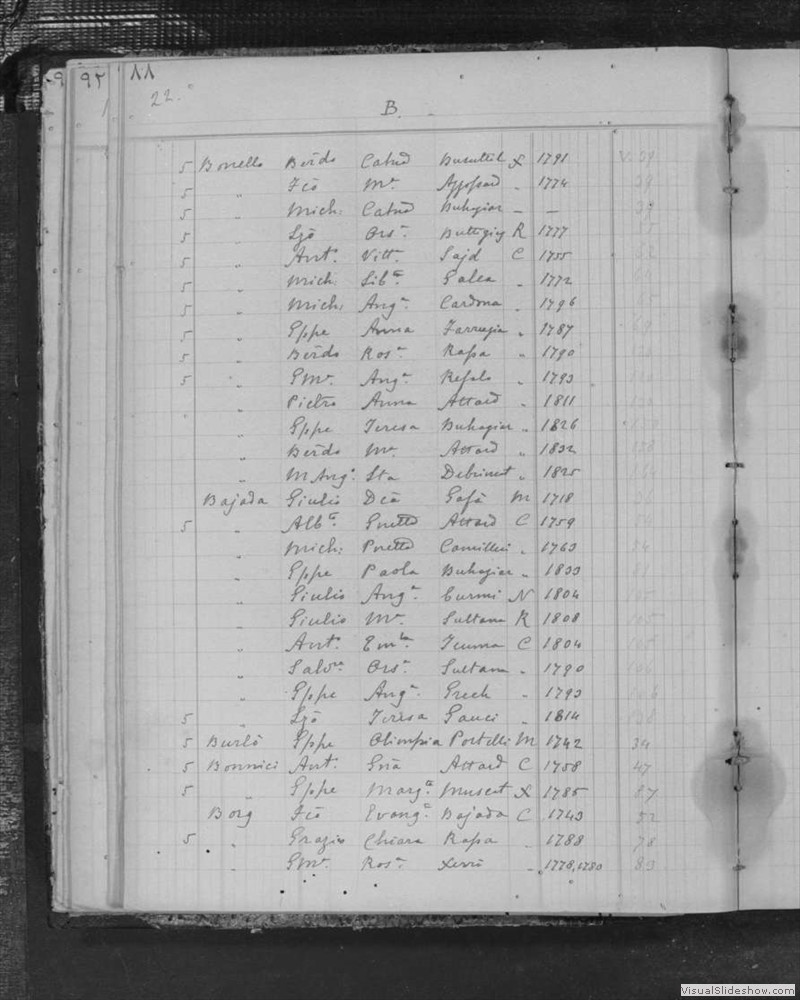 22.
B.
5 Bonello Berdo Catna Busuttil X 1791 39
5 " Fco Ma Appap " 1774 39
5 " Mich: Catna Buhagiar - - 39
5 " Lzo Orsa Buttigieg R 1777
5 " Anto Vitta Sajd C 1755
5 " Mich Liba Galea " 1772
5 " Mich: Anga Cardona " 1796
5 " Gppe Anna Farrugia " 1787
5 " Berdo Rosa Rapa " 1790
5 " GMa Anga Refalo " 1793
" Pietro Anna Attard " 1811
" Gppe Teresa Buhagiar " 1826
" Berdo Ma Attard " 1832
" MAngo Sta Debrincat " 1825
Bajada Giulio Dca Gafà M 1718
5 " Alba Attard C 1759
" Mich: Camilleri " 1763
" Gppe Paola Buhagiar " 1833
" Giulio Anga Curmi N 1804
" Giulio Ma Sultana R 1808
" Anto Ema C 1804
" Salvre Orsa Sultana " 1790
" Gppe Anga Grech " 1793
5 " Lzo Teresa Gauci " 1814
5 Burlò Gppe Olimpia Portelli M 1742 34
5 Bonnici Anto Gna Attard C 1758 47
5 " Gppe Marga Muscat X 1785 87
Borg Fco Evanga Bajada C 1743 52
5 " Grazio Chiara Rapa " 1788 78
" GMa Rosa Xerri " 1778,1780 83
VisualSlideshow.com